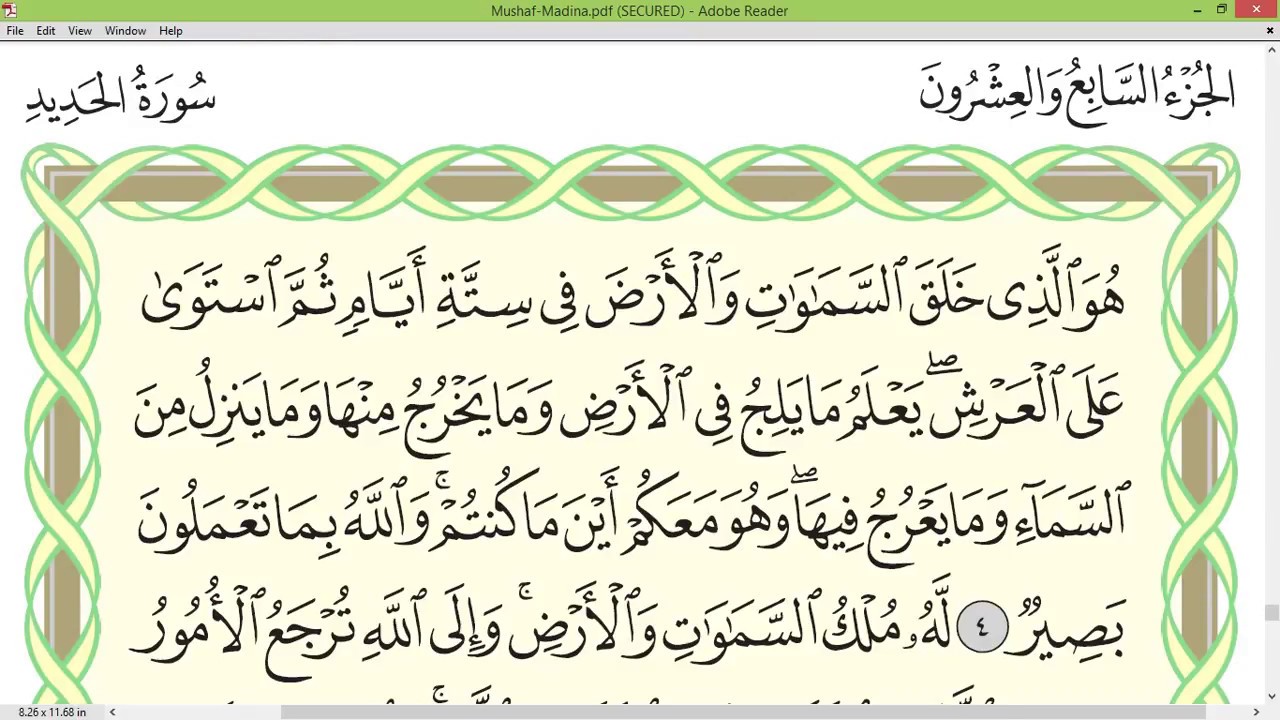 Mushaf-Madina.pdf (SECURED) - Adobe Reader
File Edit View Window Help
الجُزْءُ السَّابِعُ وَالعِشْرُونَ سُورَةُ الحَدِيدِ
هُوَ ٱلَّذِى خَلَقَ ٱلسَّمَٰوَٰتِ وَٱلْأَرْضَ فِى سِتَّةِ أَيَّامٍ ثُمَّ ٱسْتَوَىٰ
عَلَى ٱلْعَرْشِ ۖ يَعْلَمُ مَا يَلِجُ فِى ٱلْأَرْضِ وَمَا يَخْرُجُ مِنْهَا وَمَا يَنزِلُ مِنَ
ٱلسَّمَآءِ وَمَا يَعْرُجُ فِيهَا ۖ وَهُوَ مَعَكُمْ أَيْنَ مَا كُنتُمْ ۚ وَٱللَّهُ بِمَا تَعْمَلُونَ
بَصِيرٌ ٤ لَّهُۥ مُلْكُ ٱلسَّمَٰوَٰتِ وَٱلْأَرْضِ ۚ وَإِلَى ٱللَّهِ تُرْجَعُ ٱلْأُمُورُ
8.26 x 11.68 in